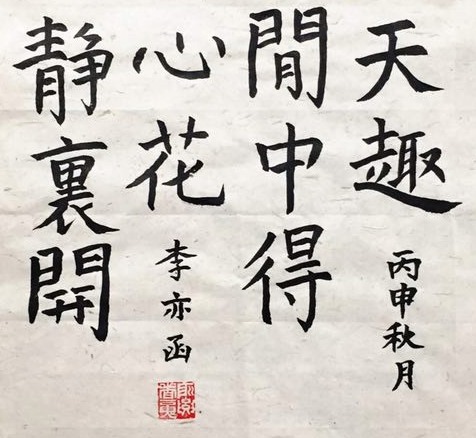 天趣
丙申秋月
閒中得
心花
李亦函
靜裏開